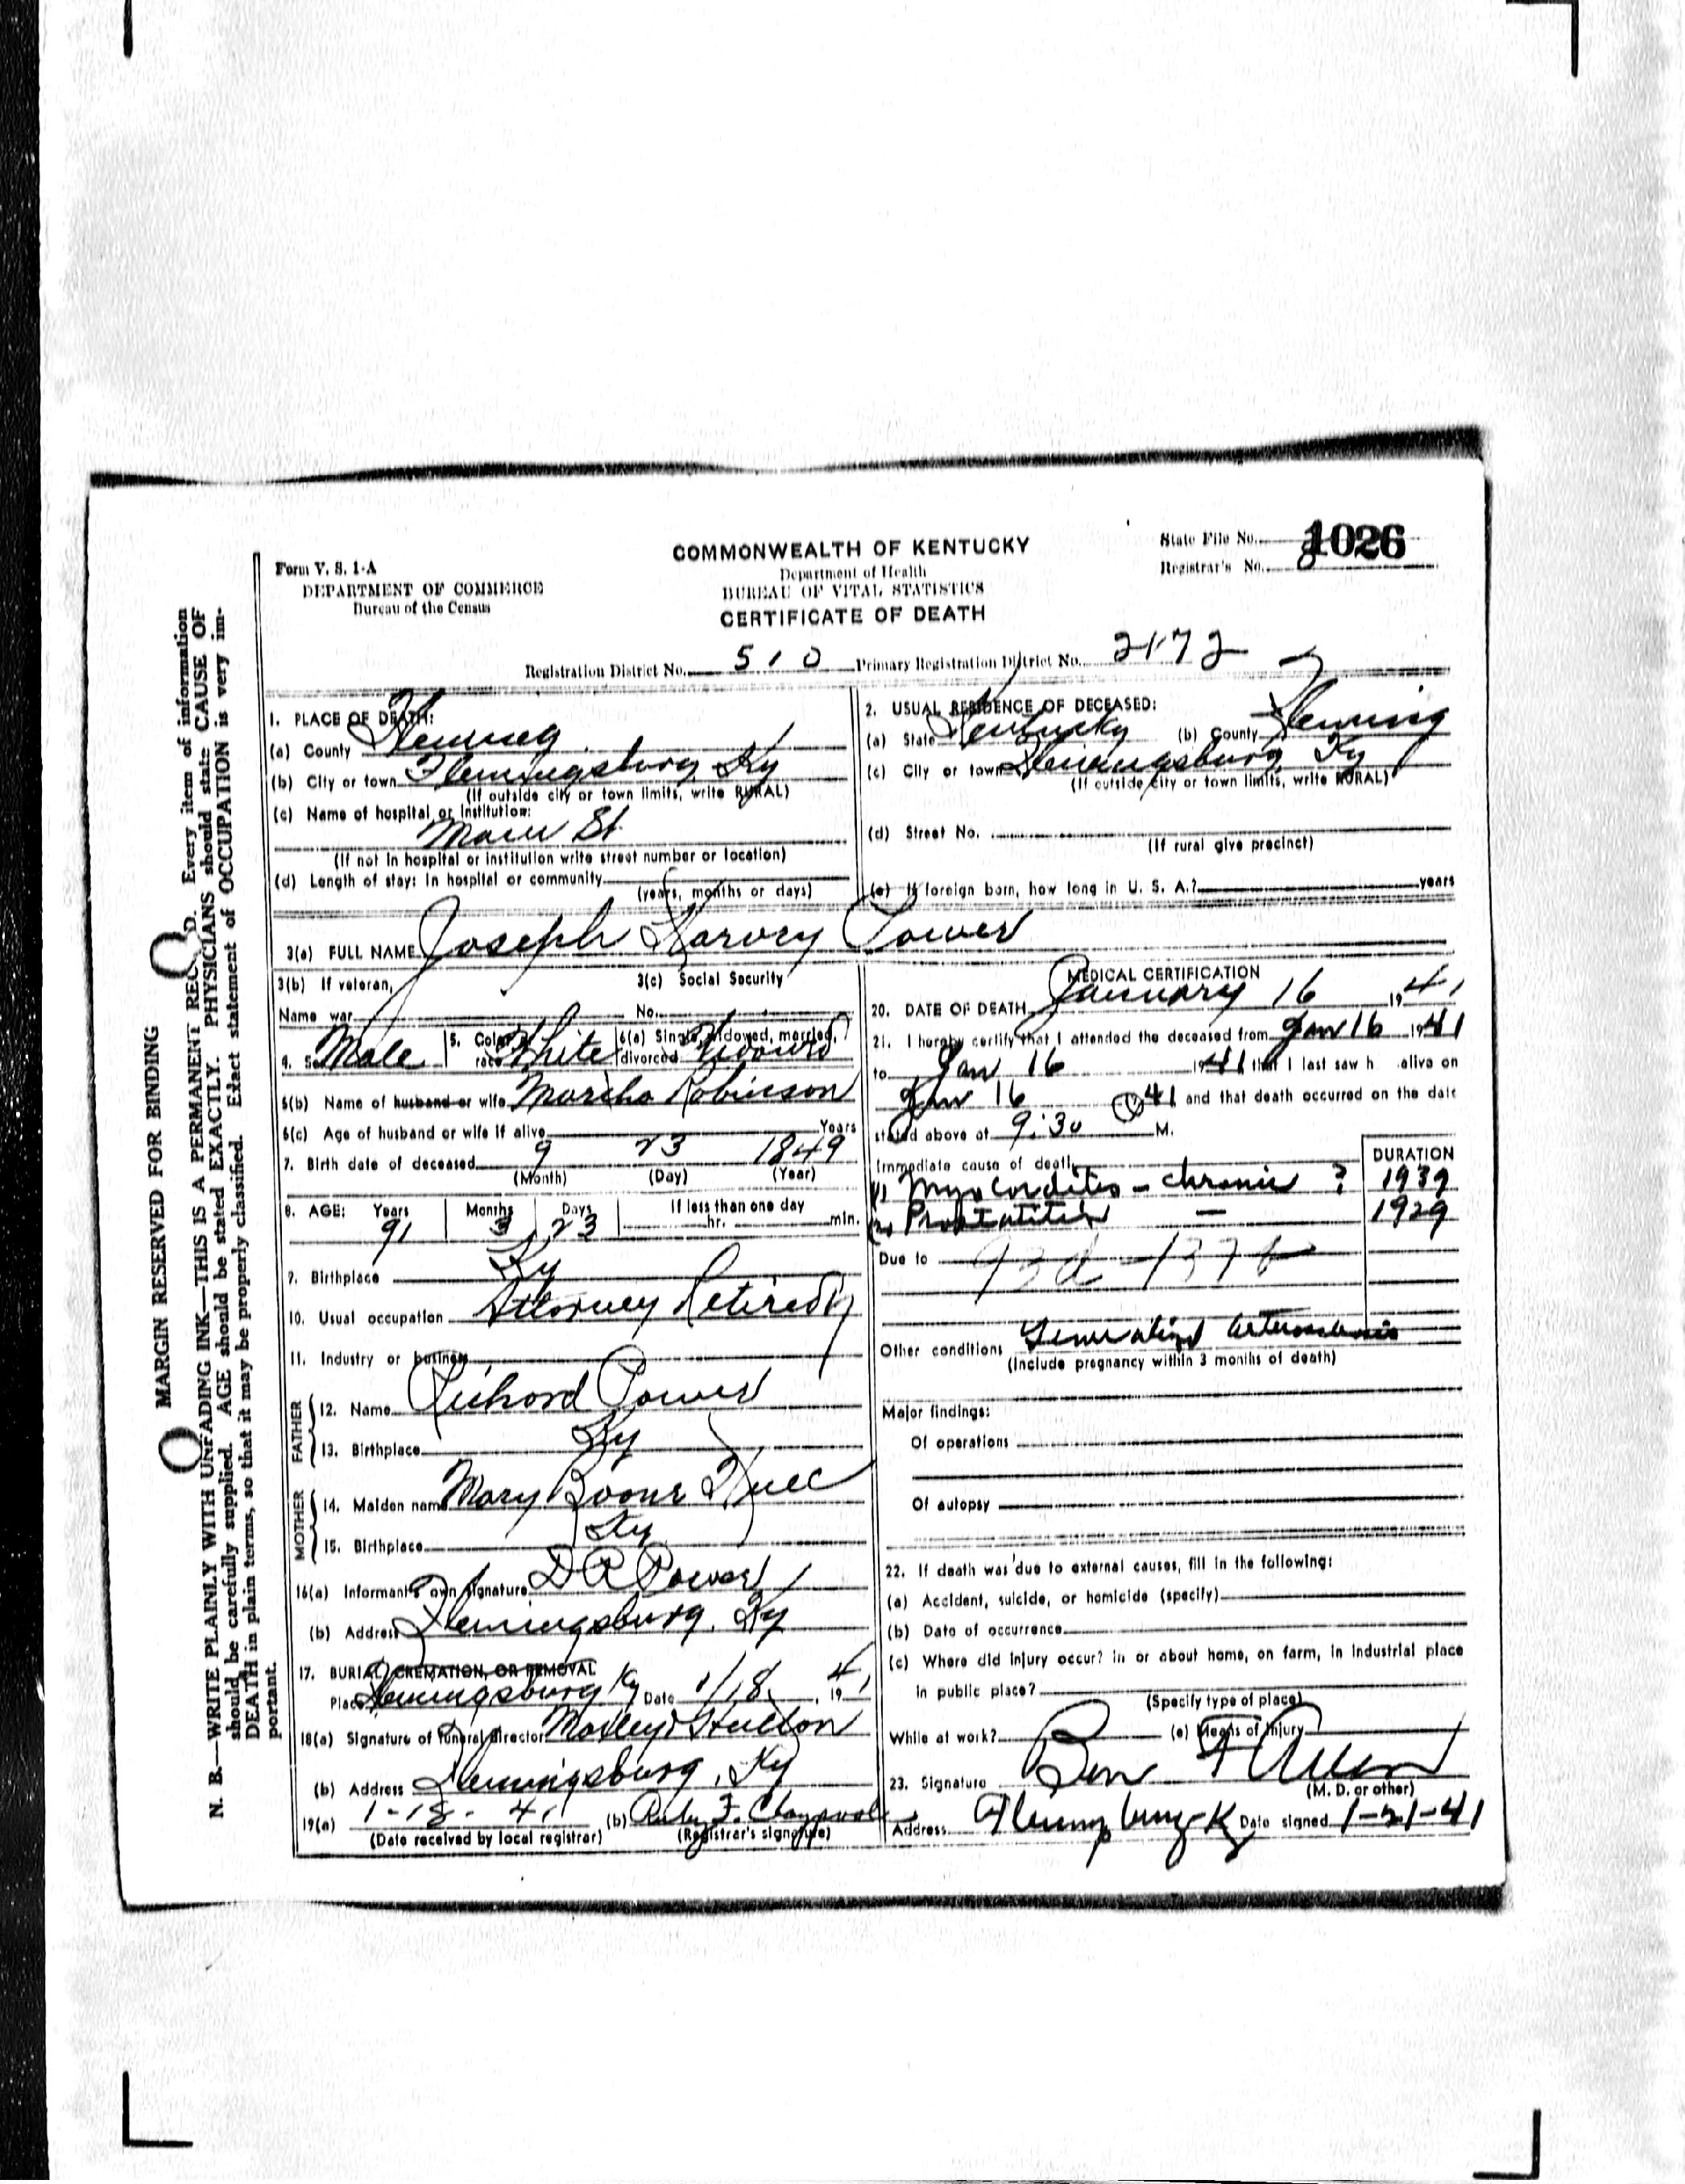 MARGIN RESERVED FOR BINDING
N. B.—WRITE PLAINLY WITH UNFADING INK—THIS IS A PERMANENT RECORD. Every item of information
should be carefully supplied. AGE should be stated EXACTLY. PHYSICIANS should state CAUSE OF
DEATH in plain terms, so that it may be properly classified. Exact statement of OCCUPATION is very im-
portant.
Form V. S. 1-A
DEPARTMENT OF COMMERCE
Bureau of the Census
COMMONWEALTH OF KENTUCKY
Department of Health
BUREAU OF VITAL STATISTICS
CERTIFICATE OF DEATH
State File No. 1026
Registrar's No.
Registration District No. 510 Primary Registration District No. 2172
1. PLACE OF DEATH:
(a) County Fleming
(b) City or town Flemingsburg Ky
(If outside city or town limits, write RURAL)
(c) Name of hospital or institution:
Main St
(If not in hospital or institution write street number or location)
(d) Length of stay: In hospital or community
(years, months or days)
2. USUAL RESIDENCE OF DECEASED:
(a) State Kentucky (b) County Fleming
(c) City or town Flemingsburg, Ky
(If outside city or town limits, write RURAL)
(d) Street No.
(If rural give precinct)
(e) If foreign born, how long in U. S. A.? years
3(a) FULL NAME Joseph Harvey Power
3(b) If veteran, 3(c) Social Security
Name war No.
4. Sex Male 5. Color or race White 6(a) Single, widowed, married, divorced Widowed
6(b) Name of husband or wife Martha Robinson
6(c) Age of husband or wife if alive Years
7. Birth date of deceased 9 23 1849
(Month) (Day) (Year)
8. AGE: Years Months Days If less than one day
91 3 23 hr. min.
9. Birthplace Ky
10. Usual occupation Attorney Retired
11. Industry or business
FATHER
12. Name Richard Power
13. Birthplace Ky
MOTHER
14. Maiden name Mary Boone
15. Birthplace Ky
16(a) Informant's own signature D R Power
(b) Address Flemingsburg, Ky
17. BURIAL, CREMATION, OR REMOVAL
Place Flemingsburg Ky Date 1/18, 1941
18(a) Signature of funeral director
(b) Address Flemingsburg, Ky
19(a) 1-18-41 (b) Ruby F. Claypool
(Date received by local registrar) (Registrar's signature)
MEDICAL CERTIFICATION
20. DATE OF DEATH January 16 1941
21. I hereby certify that I attended the deceased from Jan 16 1941
to Jan 16 1941 that I last saw h alive on
Jan 16 41 and that death occurred on the date
stated above at 9:30 M.
Immediate cause of death DURATION
(1) Myocarditis - chronic ? 1939
(2) Prostatitis — 1929
Due to
Other conditions Generalized Arteriosclerosis
(Include pregnancy within 3 months of death)
Major findings:
Of operations
Of autopsy
22. If death was due to external causes, fill in the following:
(a) Accident, suicide, or homicide (specify)
(b) Date of occurrence
(c) Where did injury occur? In or about home, on farm, in industrial place
in public place?
(Specify type of place)
While at work? (e) Means of injury
23. Signature Ben F Allen
(M. D. or other)
Address Date signed 1-21-41